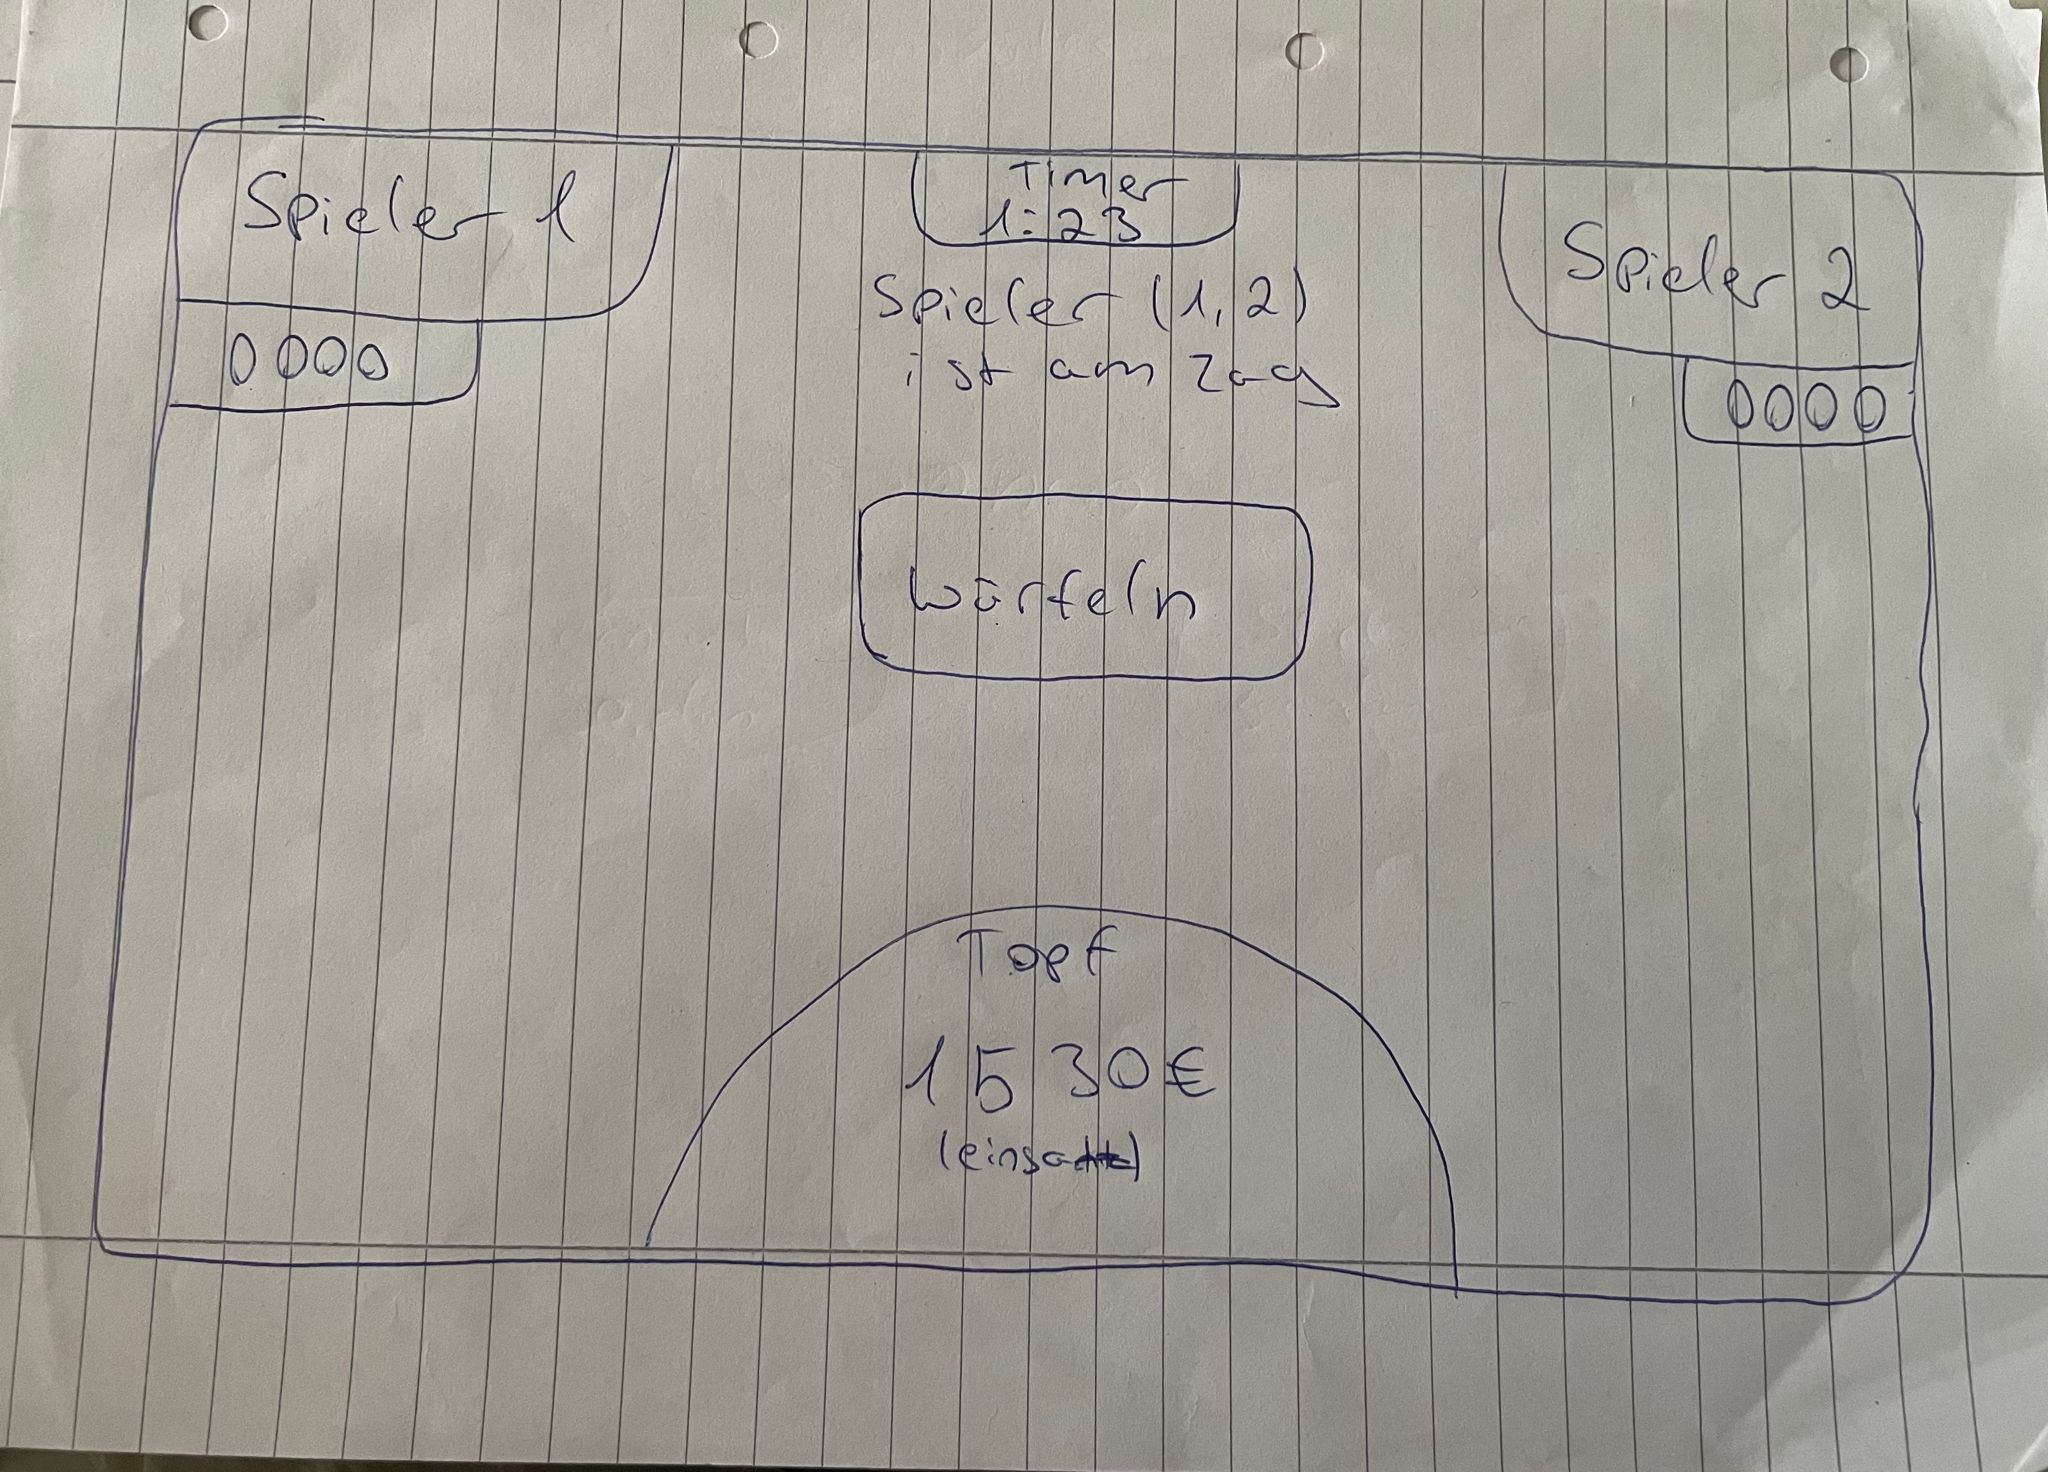 Spieler 1
0000
Timer
1:23
Spieler (1, 2)
ist am Zug
Spieler 2
0000
würfeln
Topf
1530€